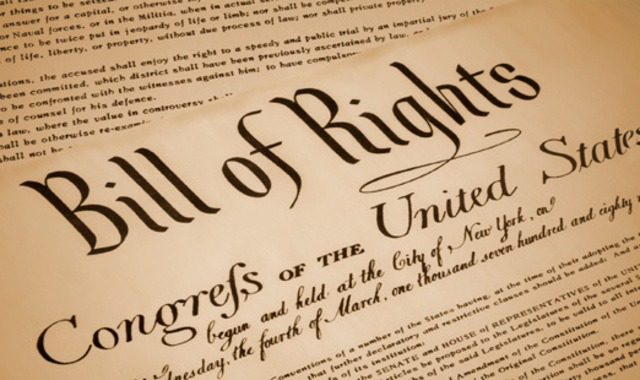 answer for a capital, or otherwise in
or Naval forces, or in the Militia, when in actual serv
nce to be twice put in jeopardy of life or limb; nor shall be compel
of life, liberty, or property, without due process of law; nor shall private property
utions, the accused shall enjoy the right to a speedy and public trial by an impartial jury of the
been committed, which district shall have been previously ascertained by law,
to be confronted with the witnesses against him; to have compulsory
of counsel for his defence.
law, where the value in controversy shall
hall be otherwise re-exami
shall not be
Bill of Rights
Congreſs OF THE United States
begun and held at the City of New York, on
dnesday, the fourth of March, one thousand seven hundred and eighty
onventions of a number of the States having, at the time of their adopting the
that further declaratory and restrictive clauses should be added: And
of its institution:
the SENATE and HOUSE of REPRESENTATIVES of the UNI
articles be proposed to the Legislatures of the several
of the said Legislatures, to be valid to all inte
Amendment of the Constitution of the
of the Original Constitution.